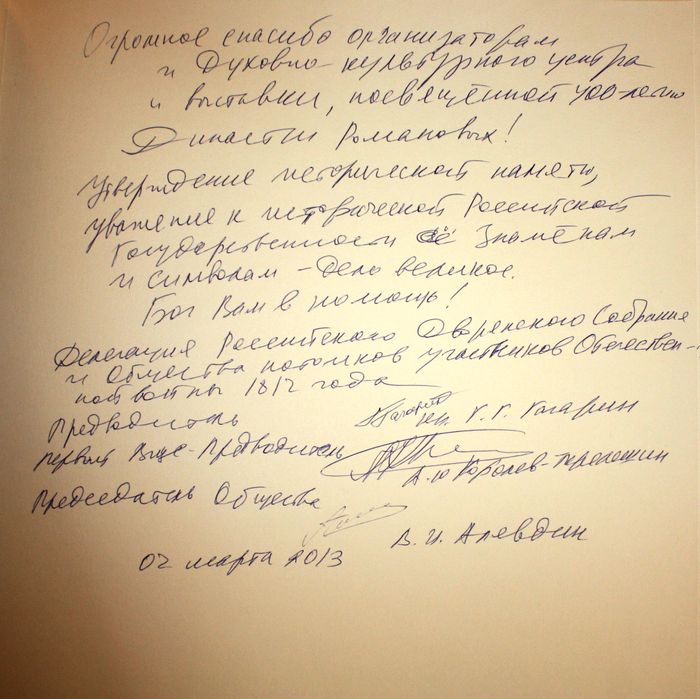 Огромное спасибо организаторам
и Духовно-культурного центра
и выставки, посвящённой 400-летию
Династии Романовых!
Утверждение исторической памяти,
уважение к исторической Российской
Государственности её Знамёнам
и символам - дело великое.
Бог Вам в помощь!
Делегация Российского Дворянского Собрания
и Общества потомков участников Отечествен-
ной войны 1812 года
Предводитель
кн. Г. Г. Гагарин
Первый Вице-Предводитель
А.Ю Королев-Перелешин
Председатель Общества
В. И. Алявдин
02 марта 2013